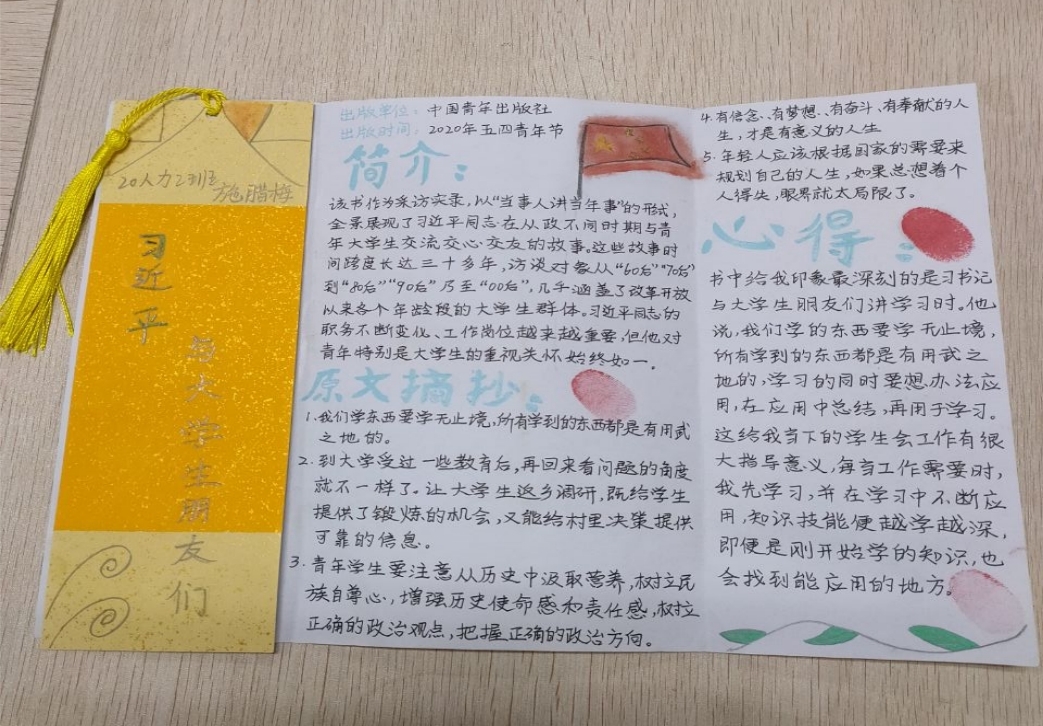 20人力2班
施腊梅
习近平
与大学生朋友们
出版单位：中国青年出版社
出版时间：2020年五四青年节
简介：
该书作为采访实录，以“当事人讲当年事”的形式，
全景展现了习近平同志在从政不同时期与青
年大学生交流交心交友的故事。这些故事时
间跨度长达三十多年，访谈对象从“60后”“70后”
到“80后”“90后”乃至“00后”，几乎涵盖了改革开放
以来各个年龄段的大学生群体。习近平同志的
职务不断变化、工作岗位越来越重要，但他对
青年特别是大学生的重视关怀始终如一。
原文摘抄：
1.我们学东西要学无止境，所有学到的东西都是有用武
之地的。
2.到大学受过一些教育后，再回来看问题的角度
就不一样了。让大学生返乡调研，既给学生
提供了锻炼的机会，又能给村里决策提供
可靠的信息。
3.青年学生要注意从历史中汲取营养，树立民
族自尊心，增强历史使命感和责任感，树立
正确的政治观点，把握正确的政治方向。
4.有信念、有梦想、有奋斗、有奉献的人
生，才是有意义的人生
5.年轻人应该根据国家的需要来
规划自己的人生，如果总想着个
人得失，眼界就太局限了。
心得：
书中给我印象最深刻的是习书记
与大学生朋友们讲学习时。他
说，我们学的东西要学无止境，
所有学到的东西都是有用武之
地的，学习的同时要想办法应
用，在应用中总结，再用于学习。
这给我当下的学生会工作有很
大指导意义，每当工作需要时，
我先学习，并在学习中不断应
用，知识技能便越学越深，
即便是刚开始学的知识，也
会找到能应用的地方。